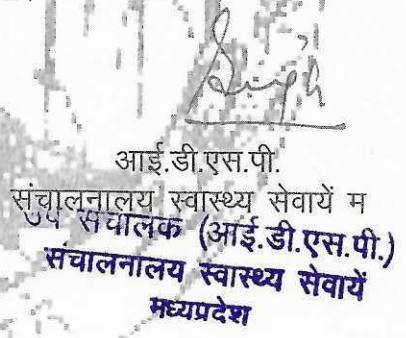 Singh
आई.डी.एस.पी.
संचालनालय स्वास्थ्य सेवायें म
उप संचालक (आई.डी.एस.पी.)
संचालनालय स्वास्थ्य सेवायें
मध्यप्रदेश